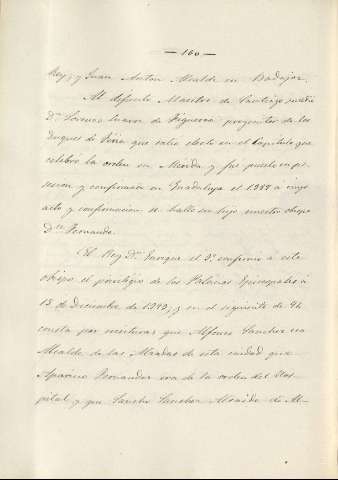 — 160 —
Rey; y Juan Anton Alcalde en Badajoz.
Al difunto Maestre de Santiago sucedió
Dn. Lorenzo Suarez de Figueroa progenitor de los
Duques de Feria que salió electo en el Capitulo que
celebró la orden en Merida y fué puesto en po-
sesion y confirmado en Guadalupe el 1387 á cuyo
acto y confirmacion se halló su hijo nuestro obispo
Dn. Fernando.
El Rey Dn. Enrique el 3º confirmó á este
obispo el privilegio de los Palacios Episcopales á
15 de Diciembre de 1393; y en el siguiente de 94
consta por escrituras que Alfonso Sanchez era
Alcalde de las Alzadas de esta ciudad que
Aparicio Fernandez era de la orden del Hos-
pital, y que Sancho Sanchez Alcaide de Al-